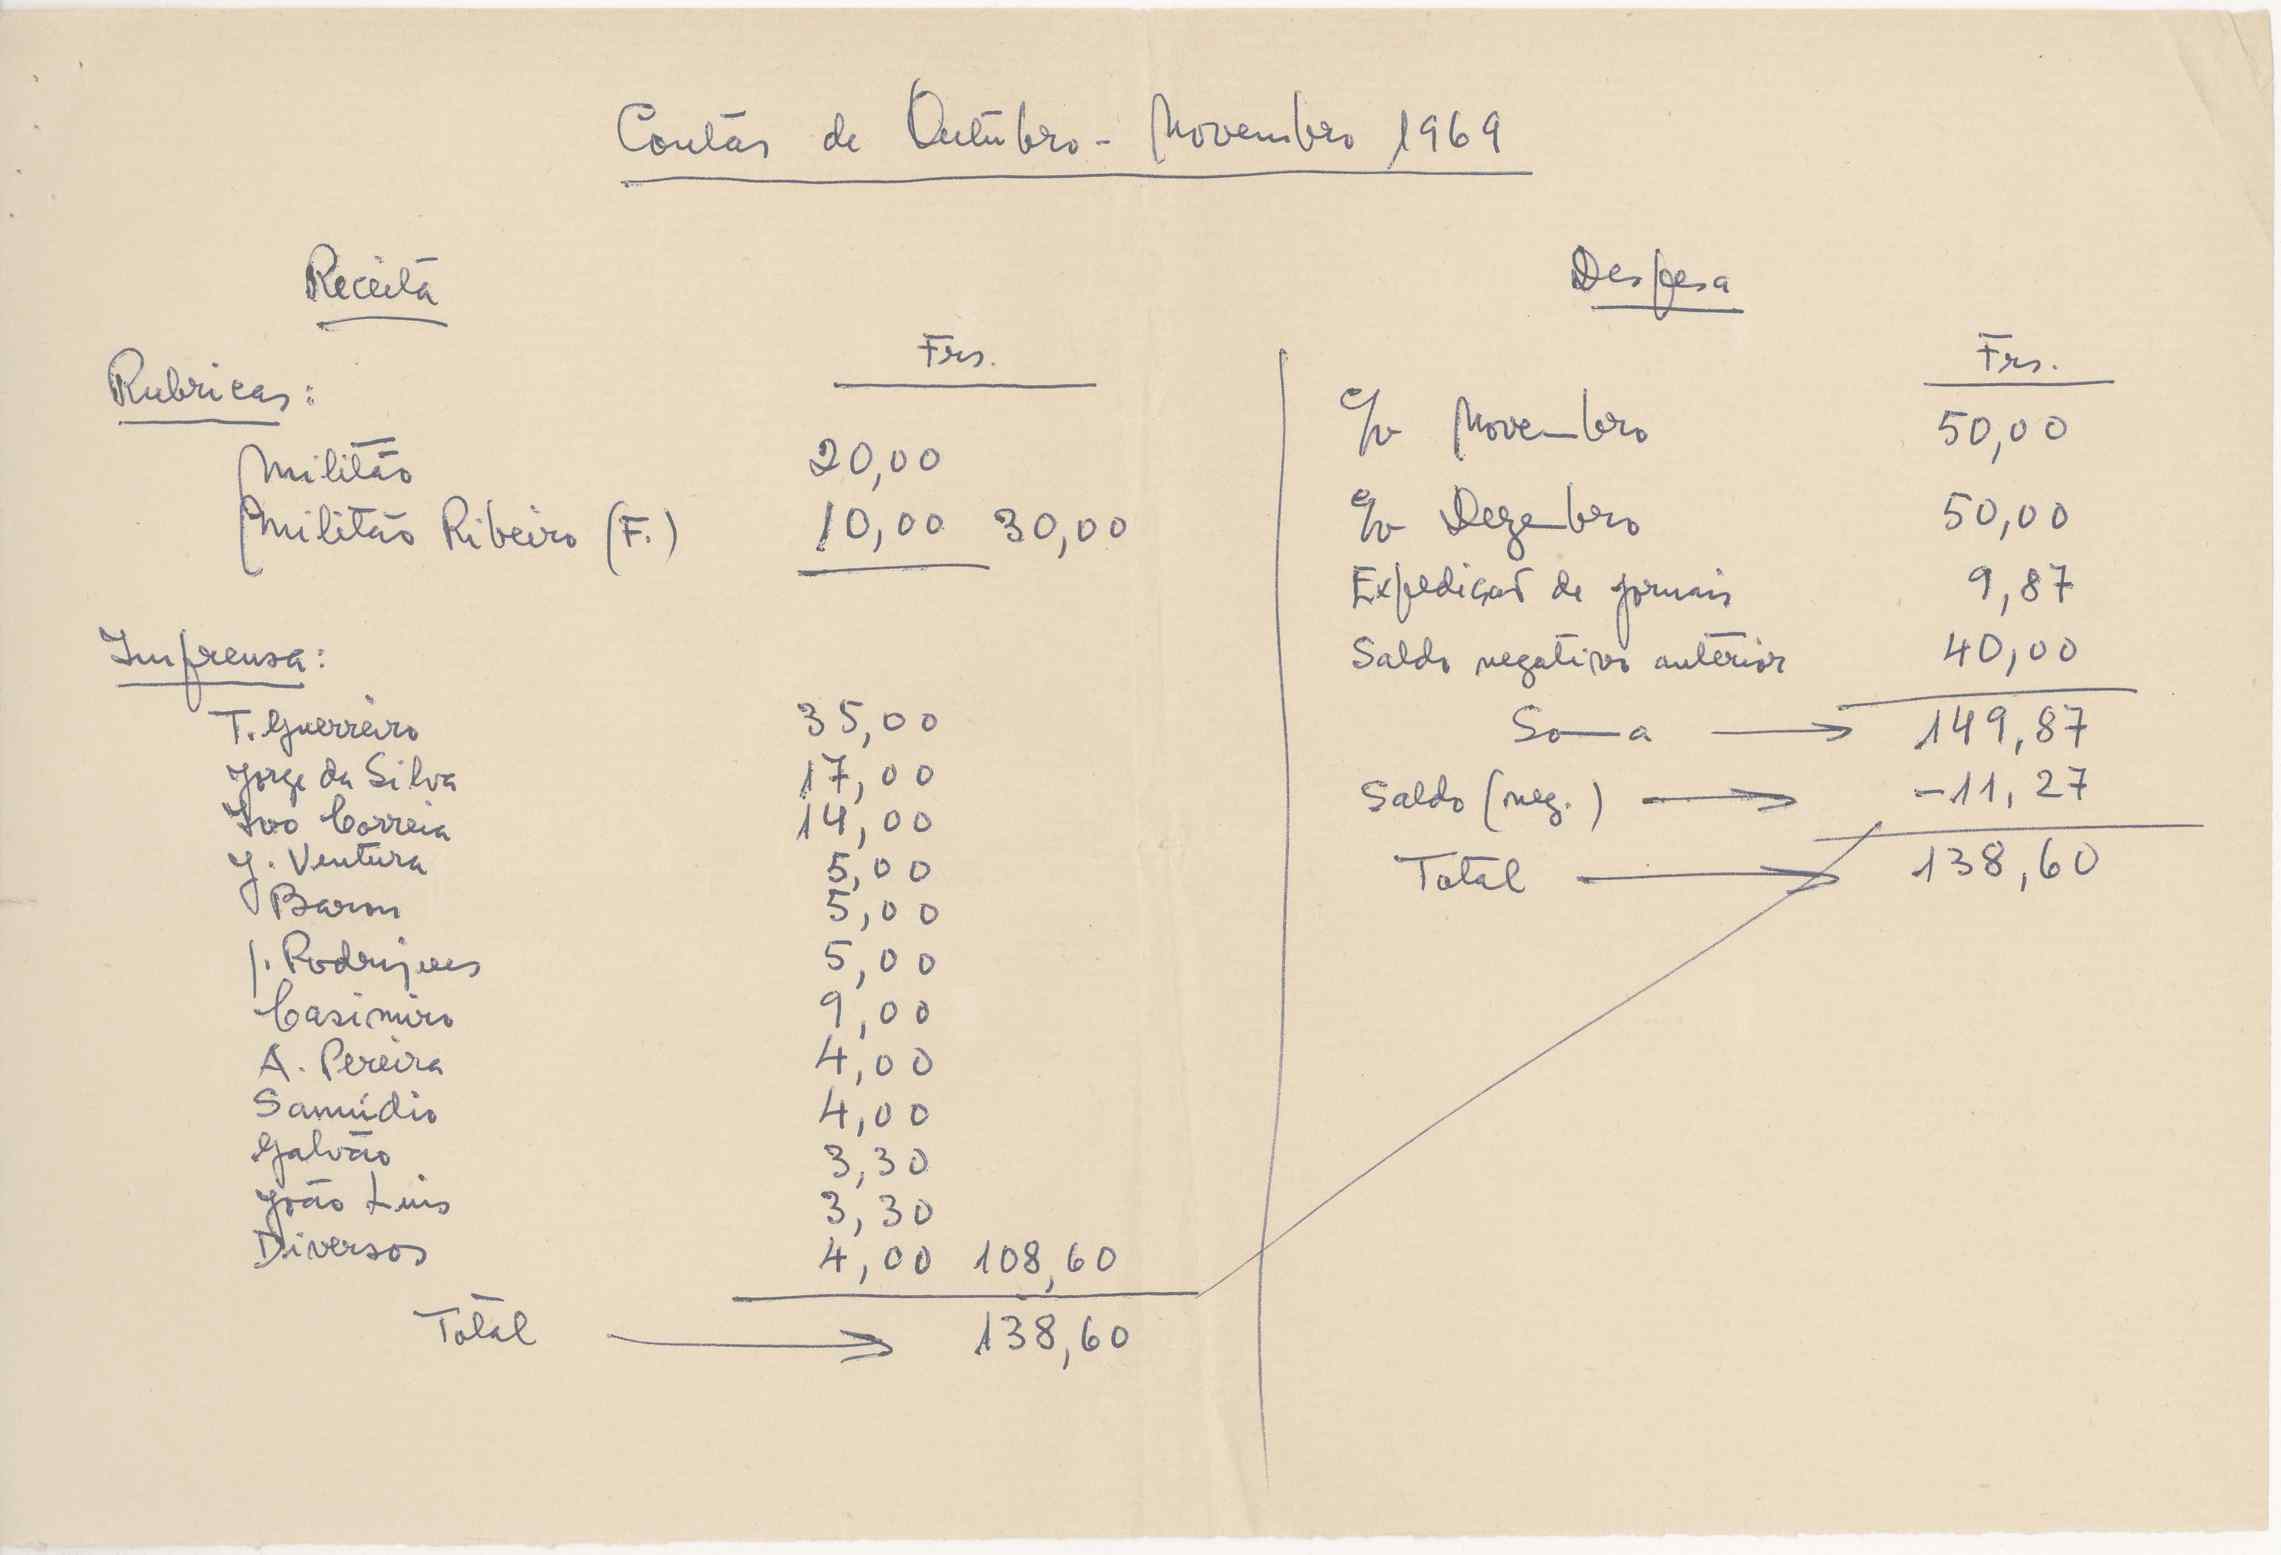 Contas de Outubro - Novembro 1969
Receita
Frs.
Rubricas:
Militão 20,00
Militão Ribeiro (F.) 10,00 30,00
Imprensa:
T. Guerreiro 35,00
Jorge da Silva 17,00
Ivo Correia 14,00
J. Ventura 5,00
Baron 5,00
J. Rodrigues 5,00
Casimiro 9,00
A. Pereira 4,00
Samúdio 4,00
Galvão 3,30
João Luis 3,30
Diversos 4,00 108,60
Total 138,60
Despesa
Frs.
Novembro 50,00
Dezembro 50,00
Expedição de jornais 9,87
Saldo negativo anterior 40,00
Soma 149,87
Saldo (neg.) -11,27
Total 138,60